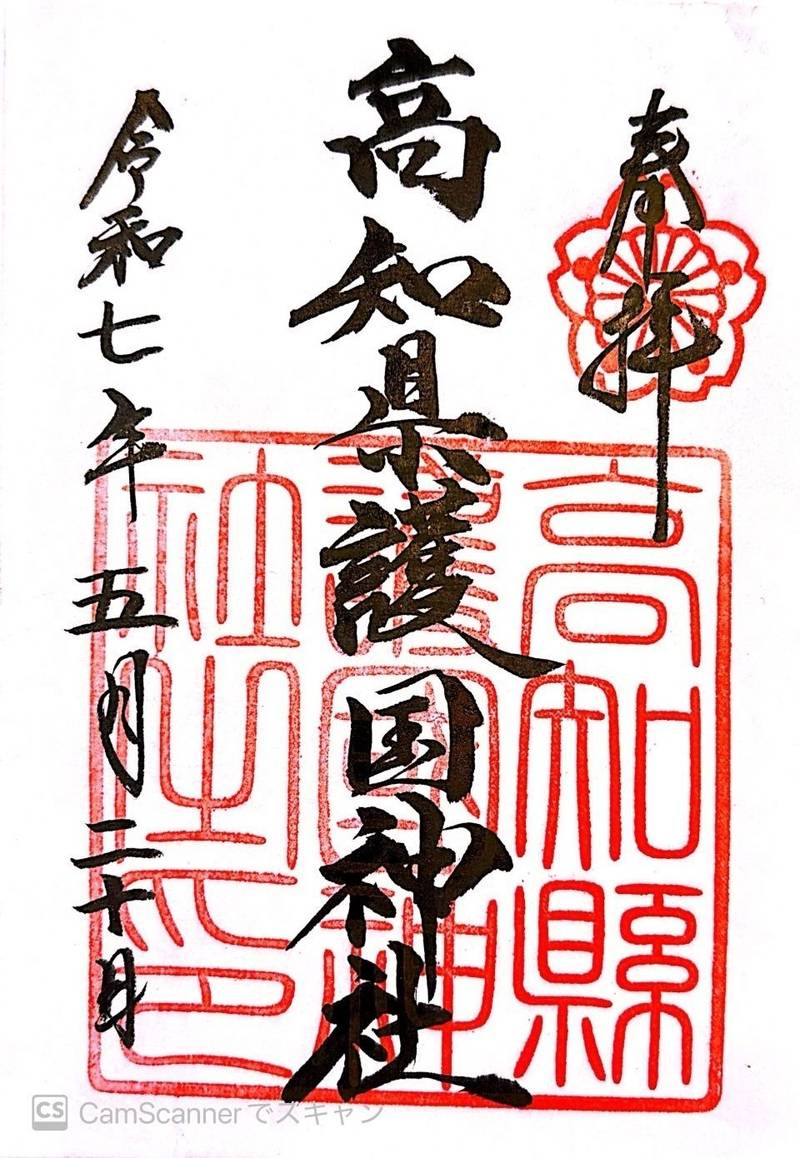 奉拝
高知県護国神社
令和七年五月二十日
高知縣
護國神
社之印
CS CamScannerでスキャン